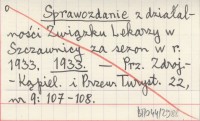 Sprawozdanie z działal-
ności Związku Lekarzy w
Szczawnicy za sezon w r.
1933. 1933. — Prz. Zdroj.-
-Kąpiel. i Przew. Turyst. 22,
nr 9: 107-108.